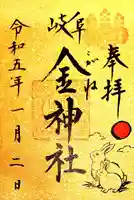 奉拝
岐阜
金神社
こがね
令和五年一月二日